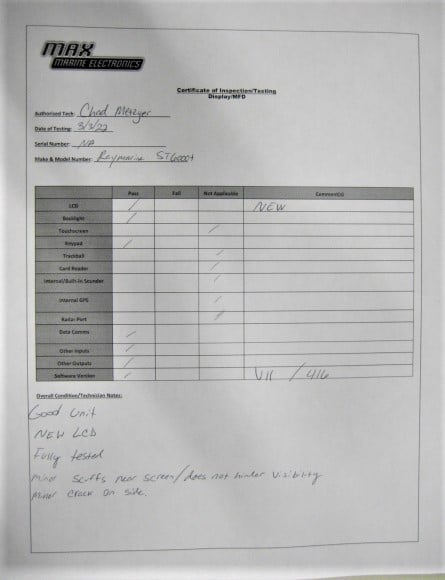 MAX
MARINE ELECTRONICS
Certificate of Inspection/Testing
Display/MFD
Authorized Tech: Chad Metzger
Date of Testing: 3/3/22
Serial Number: NA
Make & Model Number: Raymarine ST6000+
Pass Fail Not Applicable Comment(s)
LCD / NEW
Backlight /
Touchscreen /
Keypad /
Trackball /
Card Reader /
Internal/Built-in Sounder /
Internal GPS /
Radar Port /
Data Comms /
Other Inputs /
Other Outputs /
Software Version / V11 / 416
Overall Condition/Technician Notes:
Good Unit
NEW LCD
Fully tested
Minor scuffs near screen/does not hinder visibility
Minor crack on side.